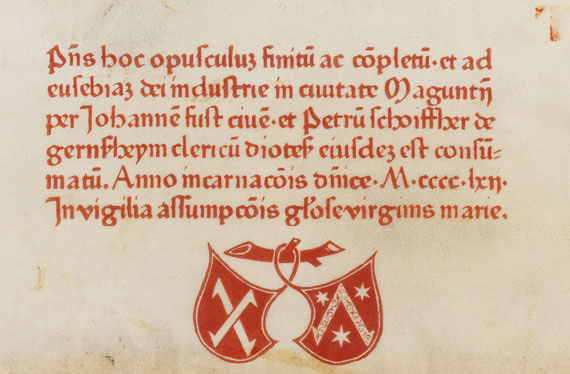 Pn̄s hoc opusculuʒ finitū ac cōpletū· et ad
eusebiaʒ dei industrie in ciuitate Maguntij
per Johannē fust ciuē· et Petrū schoiffher de
gernsʒheym clericū diotes̄ eiusdeʒ est consū⸗
matū. Anno incarnacōis dn̄ice· M·cccc·lxij·
In vigilia assumpcōis gl̄ose virginis marie.